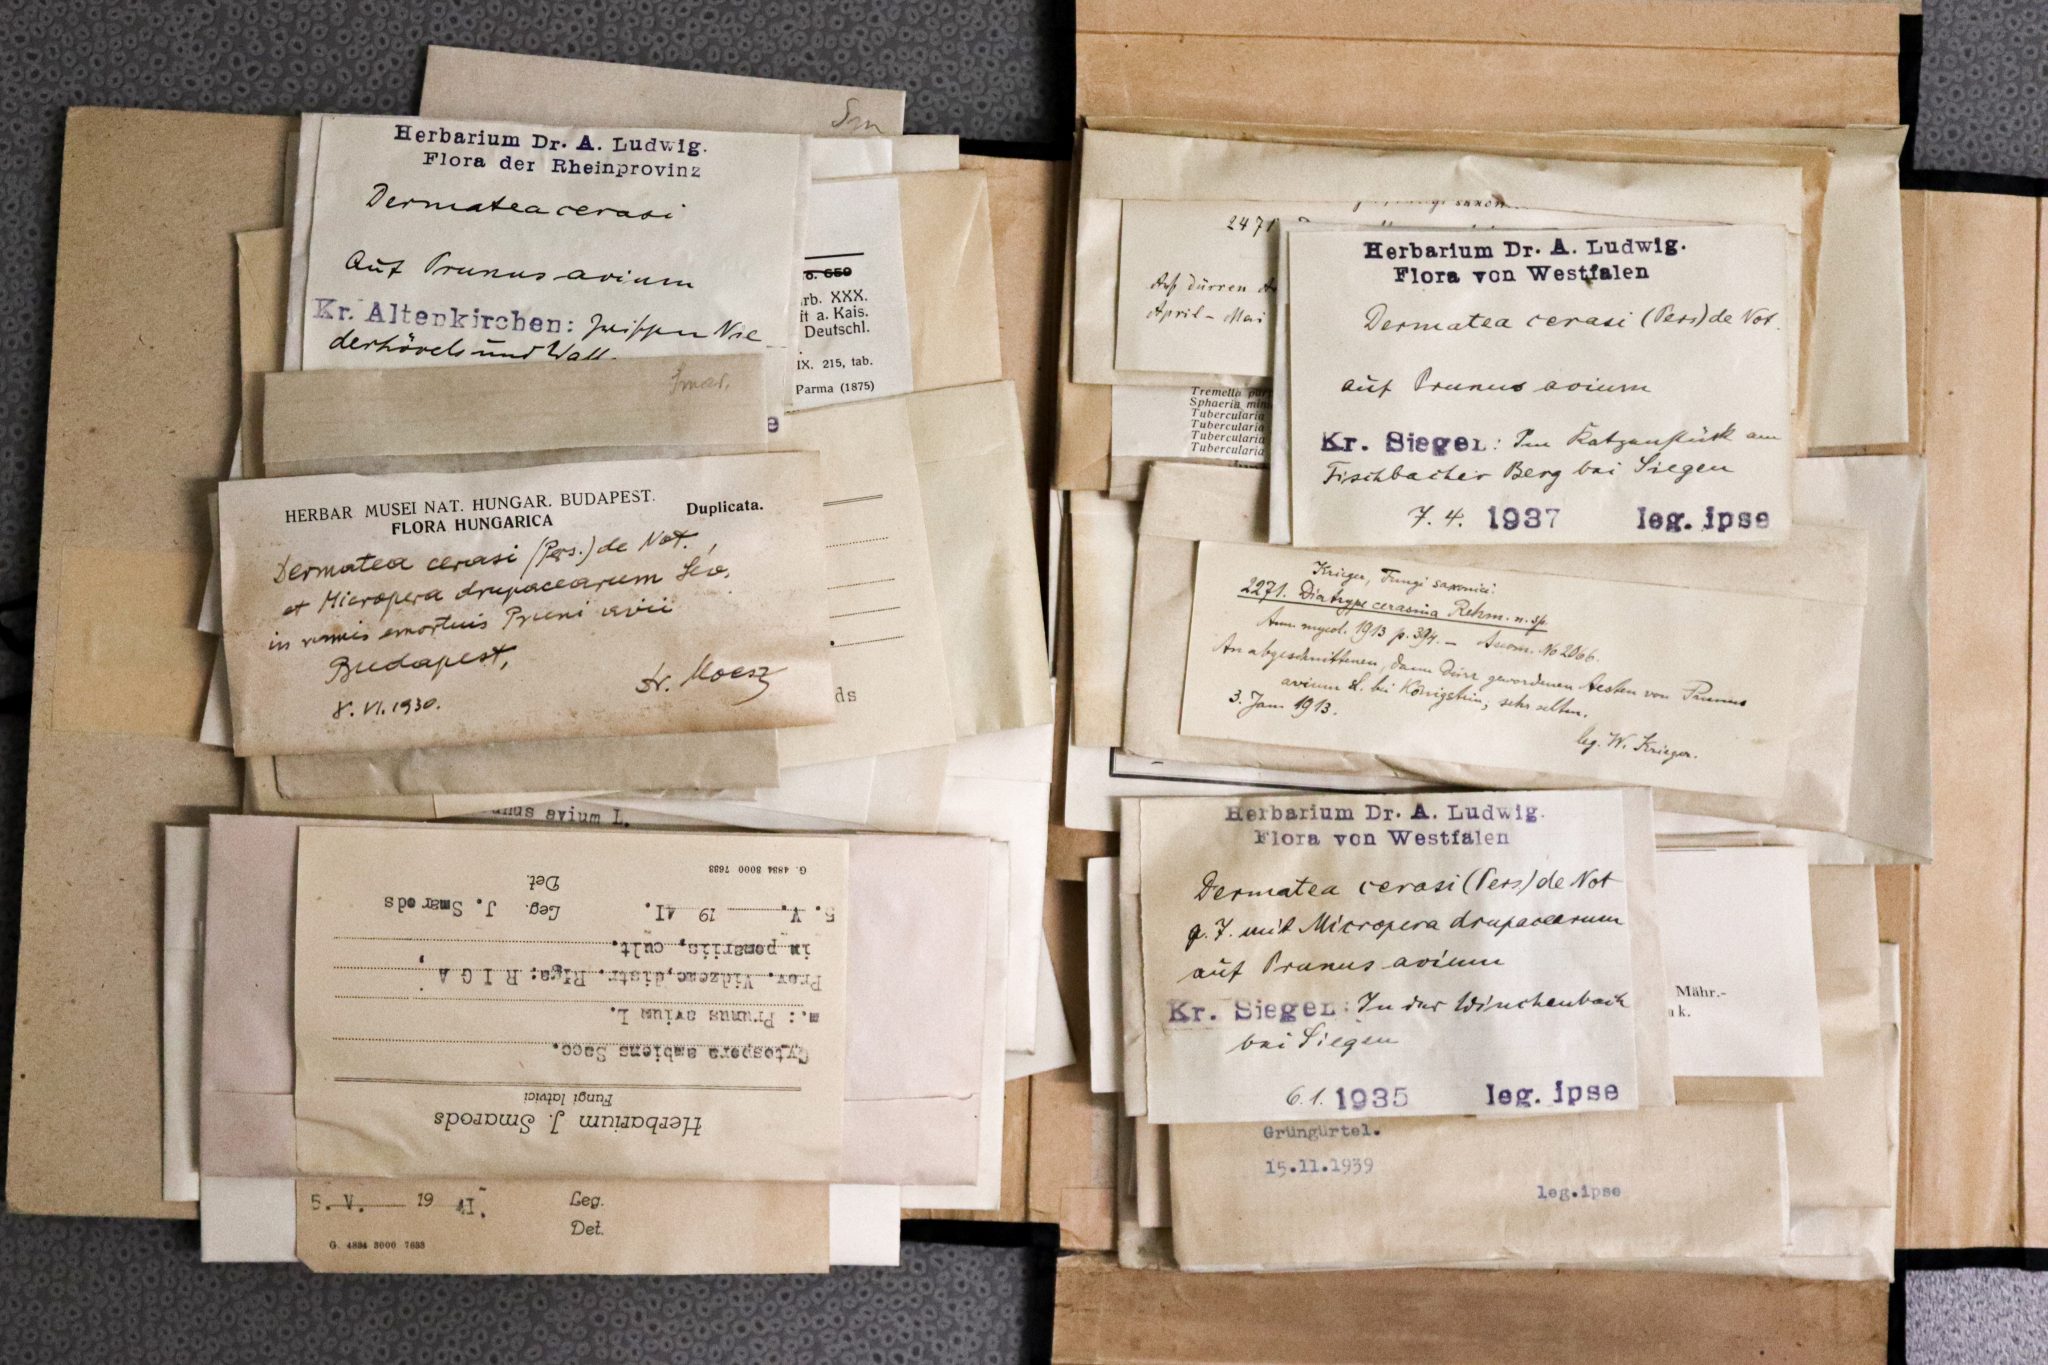 Sm
Herbarium Dr. A. Ludwig.
Flora der Rheinprovinz
Dermatea cerasi
Auf Prunus avium
Kr. Altenkirchen: zwischen Nie-
derhövels und Wall
o. 659
rb. XXX.
ft a. Kais.
Deutschl.
IX. 215, tab.
Parma (1875)
e
Smar.
HERBAR MUSEI NAT. HUNGAR. BUDAPEST.
FLORA HUNGARICA
Duplicata.
Dermatea cerasi (Pers.) de Not.
et Micropera drupacearum Lév.
in ramis emortuis Pruni avii
Budapest,
8. VI. 1930.
Dr. Moesz
ds
unus avium L.
Herbarium J. Smarods
Fungi latvici
Cytospora ambiens Sacc.
m.: Prunus avium L.
Prov. Vidzeme, distr. Riga: RIGA,
in pomariis, cult.
5. V. 19 41.
Leg. J. Smarods
Det.
G. 4834 3000 7633
5. V. 19 41.
Leg.
Det.
G. 4834 3000 7633
2471
Auf dürren
April - Mai
Tremella pur
Sphaeria min
Tubercularia
Tubercularia
Tubercularia
Tubercularia
Herbarium Dr. A. Ludwig.
Flora von Westfalen
Dermatea cerasi (Pers) de Not.
auf Prunus avium
Kr. Siegen: Im Katzenstück am
Fischbacher Berg bei Siegen
7. 4. 1937 leg. ipse
Krieger, Fungi saxonici.
2271. Diatrype cerasina Rehm. n. sp.
Ann. mycol. 1913 p. 394. — Ascom. No 2066.
An abgeschnittenen, dann dürr gewordenen Aesten von Prunus
avium L. bei Königstein, sehr selten.
3. Jan 1913.
leg. W. Krieger.
Herbarium Dr. A. Ludwig.
Flora von Westfalen
Dermatea cerasi (Pers) de Not
z. T. mit Micropera drupacearum
auf Prunus avium
Kr. Siegen: In der Winchenbach
bei Siegen
6. 1. 1935 leg. ipse
Mähr.-
k.
Grüngürtel.
15.11.1939
leg.ipse